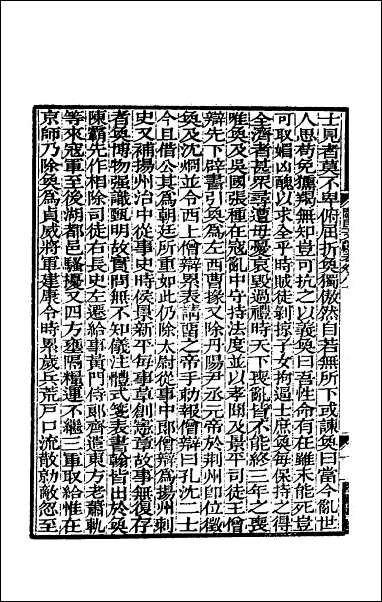 士見者莫不卑俯屈折奐獨傲然自若無所下或諫奐曰當今亂世
人思苟免獯羯無知豈可抗之以義奐曰吾性命有在雖未能死豈
可取媚凶醜以求全乎時賊徒剝掠子女拘逼士庶奐每保持之得
全濟者甚眾尋遭母憂哀毀過禮時天下喪亂皆不能終三年之喪
唯奐及吳國張種在寇亂中守持法度並以孝聞及景平司徒王僧
辯先下辟書引奐為左西曹掾又除丹陽尹丞元帝於荊州即位徵
奐及沈烱並令西上僧辯累表請留之帝手勅報僧辯曰孔沈二士
今且借公其為朝廷所重如此仍除太尉從事中郎僧辯為揚州刺
史又補揚州治中從事史時侯景新平每事草創憲章故事無復存
者奐博物强識甄明故實問無不知儀注體式箋表書翰皆出於奐
陳霸先作相除司徒右長史左遷給事黃門侍郎齊遣東方老蕭軌
等來寇軍至後湖都邑騷擾又四方壅隔糧運不繼三軍取給惟在
京師乃除奐為貞威將軍建康令時累歲兵荒戶口流散勍敵忽至